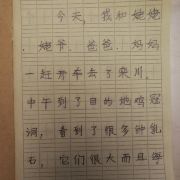 今天，我和姥姥
、姥爷、爸爸、妈妈
一赶开车去了栾川，
中午到了目的地鸡冠
洞，看到了很多钟乳
石，它们很大而且